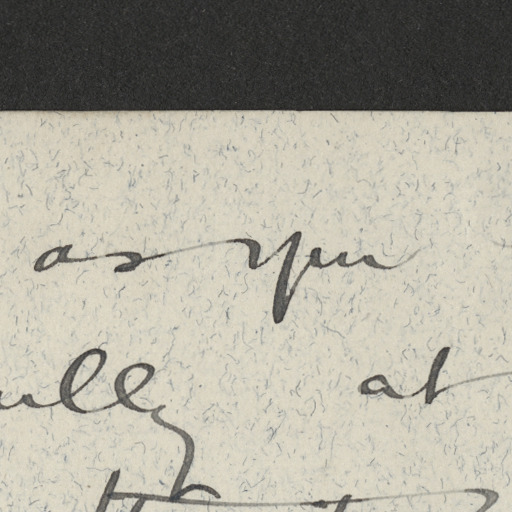 as you
ully at